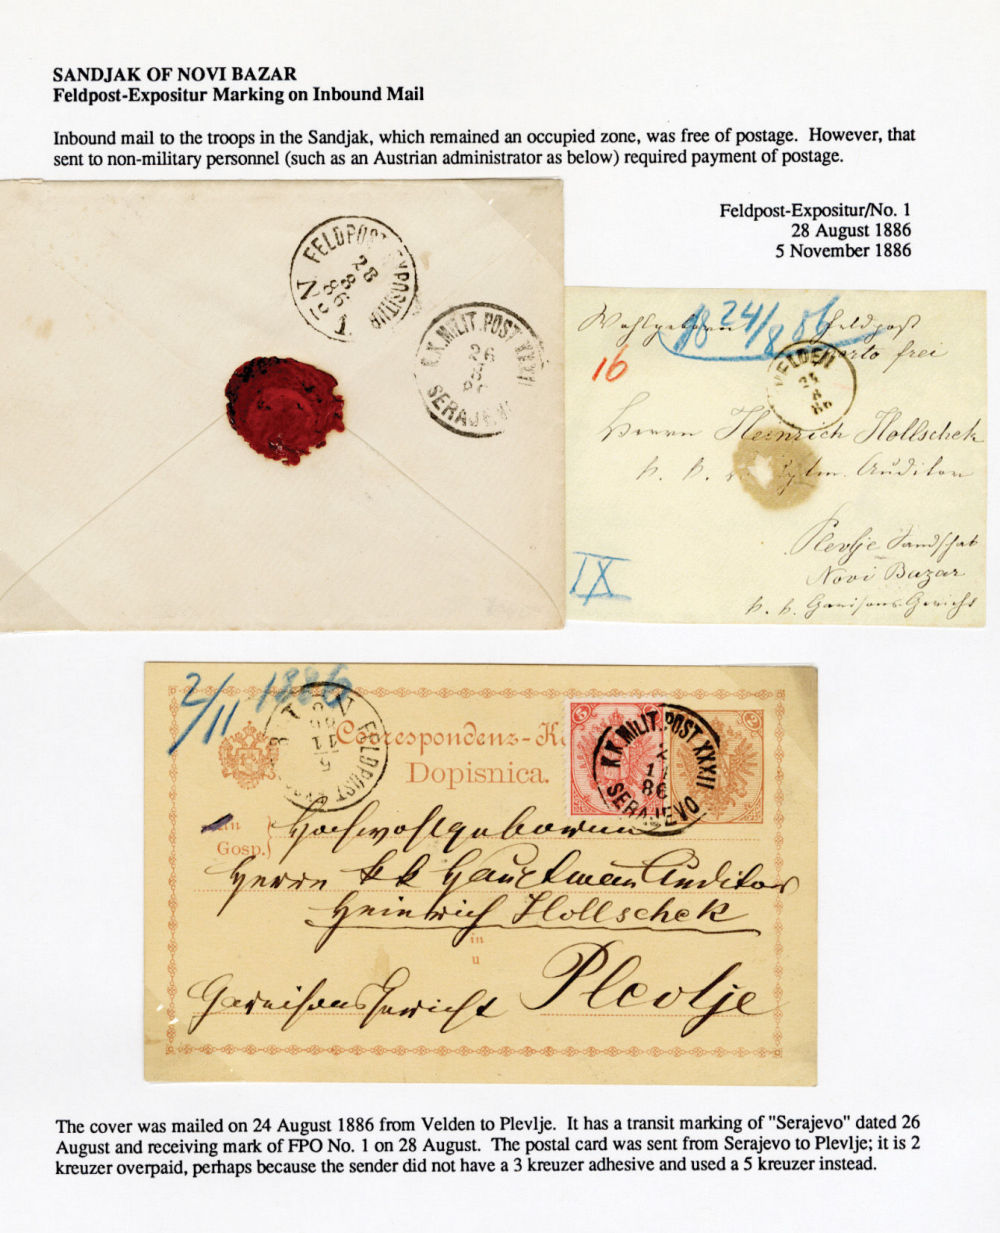 SANDJAK OF NOVI BAZAR
Feldpost-Expositur Marking on Inbound Mail
Inbound mail to the troops in the Sandjak, which remained an occupied zone, was free of postage. However, that
sent to non-military personnel (such as an Austrian administrator as below) required payment of postage.
Feldpost-Expositur/No. 1
28 August 1886
5 November 1886
FELDPOST EXPOSITUR
28
8
86
No 1
K.K. MILIT. POST XXXII
26
SERAJEVO
Wohlgeboren Feldpost
18 24/8 86
porto frei
16
VELDEN
24
8
86
Herrn Heinrich Hollschek
k. k. Auditor
Plevlje Sandschak
Novi Bazar
IX
k. k. Garnisons Gericht
2/11 1886
FELDPOST
5
11
86
5
2
Correspondenz-Ka
Dopisnica.
K.K. MILIT. POST XXXII
2
11
86
SERAJEVO
An
Gosp.
Hochwohlgeboren
Herrn k k Hauptmann Auditor
Heinrich Hollschek
in
u
Plevlje
Garnisons Gericht
The cover was mailed on 24 August 1886 from Velden to Plevlje. It has a transit marking of "Serajevo" dated 26
August and receiving mark of FPO No. 1 on 28 August. The postal card was sent from Serajevo to Plevlje; it is 2
kreuzer overpaid, perhaps because the sender did not have a 3 kreuzer adhesive and used a 5 kreuzer instead.